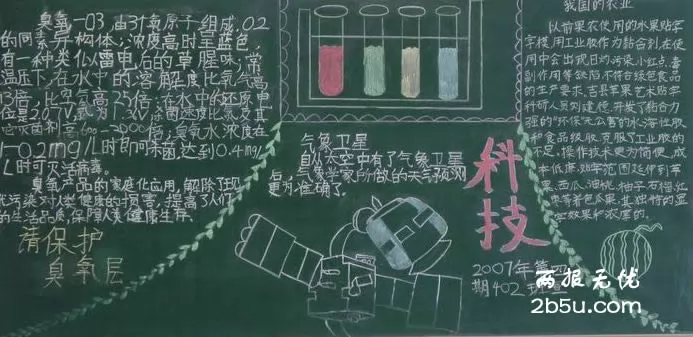 臭氧—O3,由3个氧原子组成,O2
的同素异构体;浓度高时呈蓝色,
有一种类似雷电后的草腥味;常
温压下,在水中的溶解度比氧气
高13倍,比空气高25倍;在水中的还原电
位是2.07V,氯为1.3V,
1—0.2mg/L时即可杀菌,达到0.4mg/
L时可灭活病毒。
臭氧产品的家庭化应用,解除了现
代污染对人类健康的损害,提高了人们
的生活品质,保障人类健康生存。
请保护
臭氧层
气象卫星
自从太空中有了气象卫星
后,气象学家所做的天气预测
更为准确了。
科技
2007年第四
期402班
我国的农业
以前果农使用的水果贴字
字模用工业胶作为黏合剂,在使
用中会出现日灼、污染、小红点、毒
副作用等缺陷,不符合绿色食品
的生产要求,吉县苹果艺术贴字
科研人员刘建德,开发了黏合力
强的“环保”无公害的水溶性胶
和食品级胶,克服了工业胶的
不足,操作技术更为简便,成
本低廉,贴字范围延伸到苹
果、西瓜、油桃、柚子、石榴、红
枣等着色瓜果,其独特的显
字效果和浓厚的。
两报无忧
2b5u.com